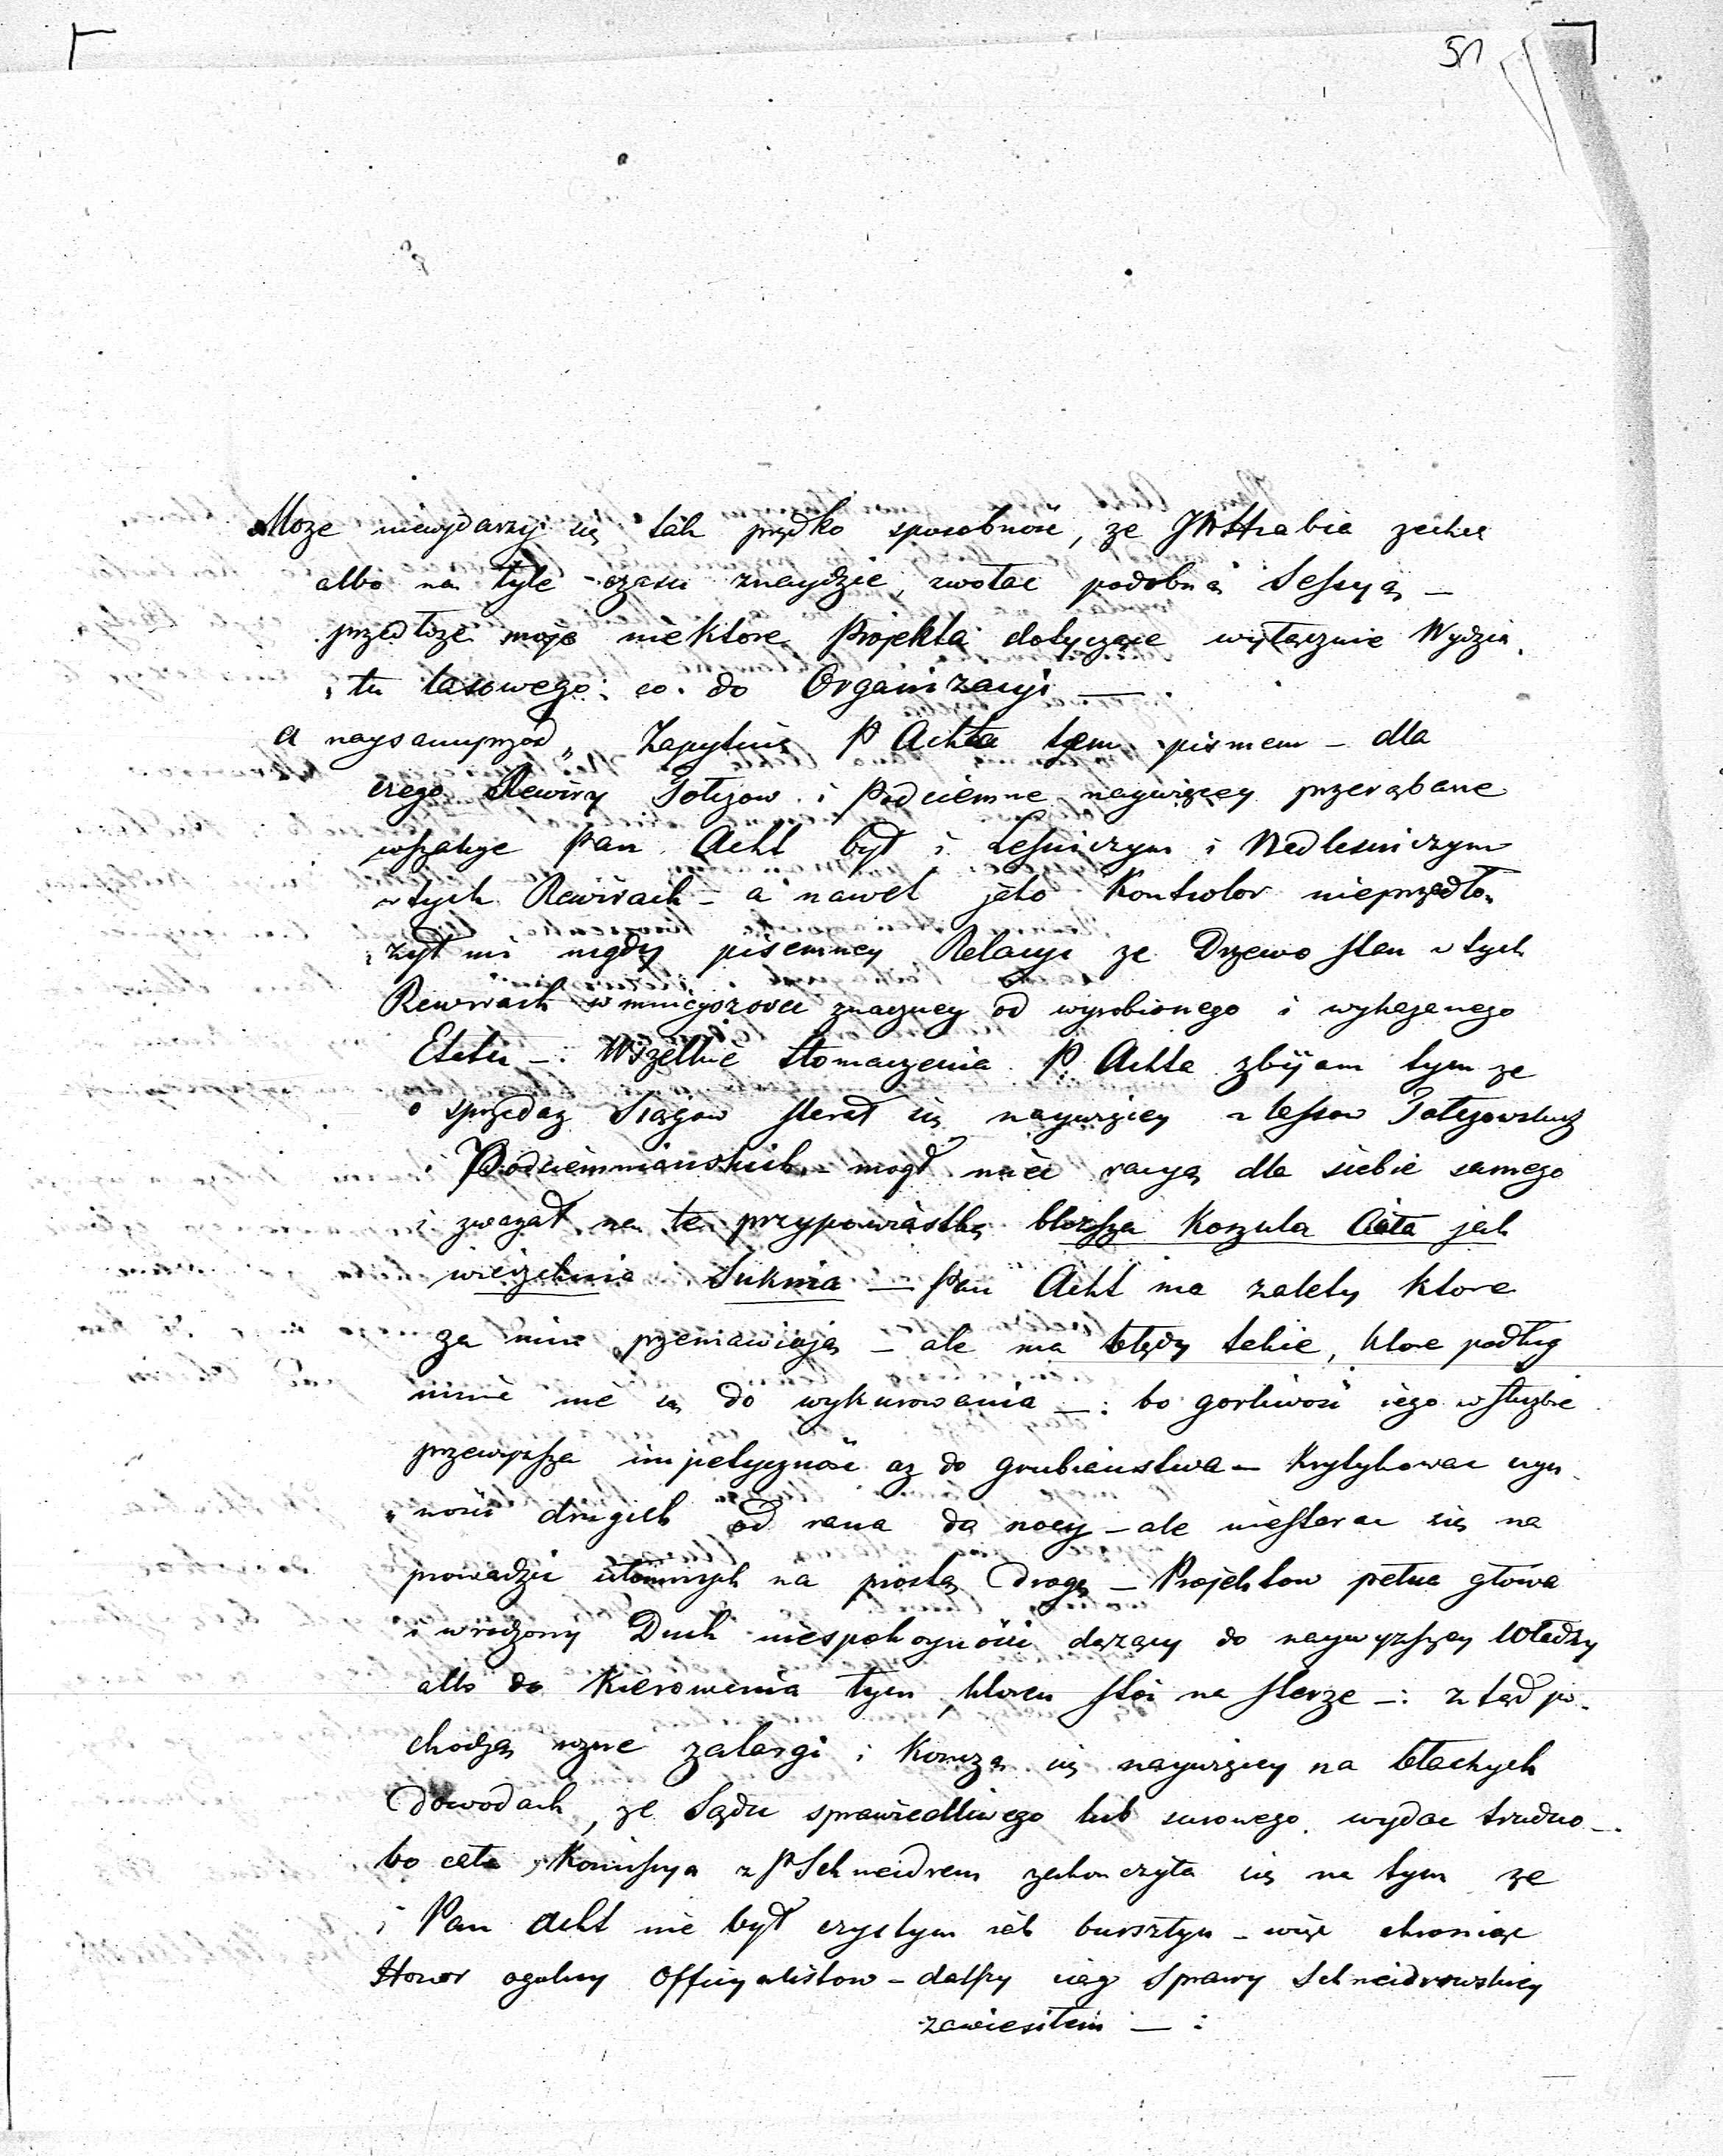 51
Moze niewydarzy się tak prędko sposobność, ze JWHrabia zechce
albo na tyle czasu znaydzie, zwołac podobną Sessyą —
przedłoże moje niektore Projekta dotyczące wyłącznie Wydzia„
„łu lasowego: co do Organizacyi —
a naysamprzod„ Zapytuię P Achta tem pismem — dla
czego Rewiry Tołszow i Podciemne naywięcey przerąbane
wszakże Pan Acht był i Leśniczym i Nadlesniczym
w tych Rewirach — a nawet jako Kontrolor nieprzedło„
„zył mi nigdy pisemney Relacyi ze Drzewo stan w tych
Rewirach w mnieyszosci znaczney od wyrobionego i wykazanego
Etatu —: Wszelkie tłomaczenia P: Achta zbijam tym ze
o sprzedaz Sągow starał się naywięcey z lassow
i Podciemnianskich — mogł miec racyą dla siebie samego
i zwazał na te przypowiastkę blozsza Koszula Ciała jak
wierzchnia Suknia — Pan Acht ma zalety ktore
za nim przemawiają — ale ma błędy takie, ktore podług
mnie nie są do wykurowania —: bo gorliwość iego w słuzbie
przewyzsza impetyczność az do grubianstwa — Krytykowac czyn„
„ności drugich od rana do nocy — ale niestarac się na
prowadzic ułomnych na prostą drogę — Projektow pełna głowa
i wrodzony Duch niespokoyności dązący do naywyzszey Władzy
albo do Kierowania tym, ktoren stoi na sterze —: z tąd po„
chodzą rozne zatargi i Koncza się naywięcey na błachych
Dowodach, ze Sądu sprawiedliwego lub surowego wydac trudno —.
bo cała Komissya z P Schneidrem zakonczyła się na tym ze
i Pan Acht nie był czystym iak bursztyn — więc chroniąc
Honor ogulny Officyalistow — dalszy ciąg Sprawy Schneidrowskiey
zawiesiłem — :